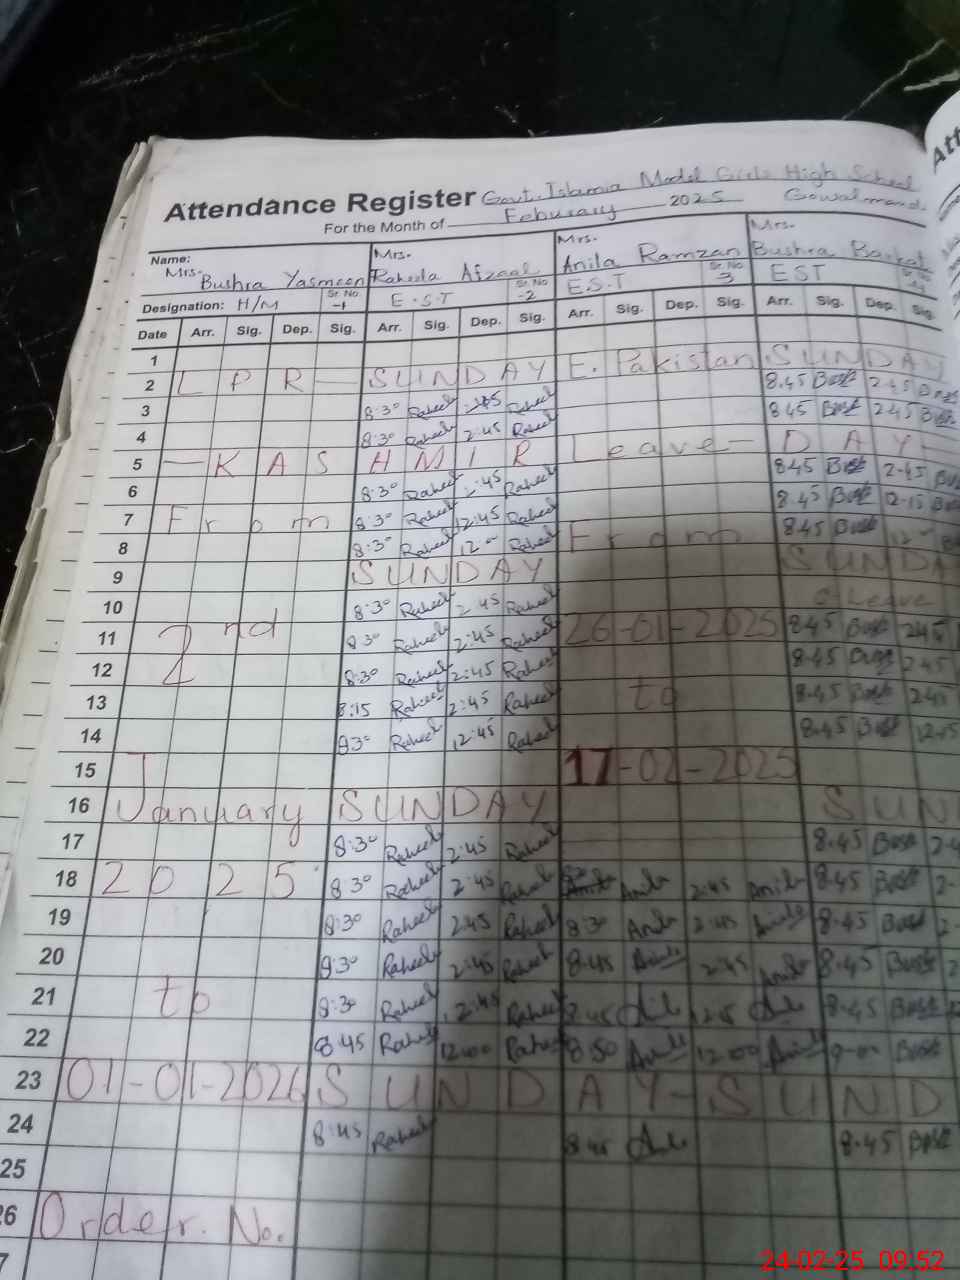 Attendance Register Govt. Islamia Model Girls High School
For the Month of Feburary 2025 Gowalmandi
Name: Mrs. Bushra Yasmeen Mrs. Raheela Afzaal Mrs. Anila Ramzan Mrs. Bushra Barkat
Designation: H/M Sr. No -1 E.S.T Sr. No -2 E.S.T Sr. No 3 EST
Date Arr. Sig. Dep. Sig. Arr. Sig. Dep. Sig. Arr. Sig. Dep. Sig. Arr. Sig. Dep. Sig.
1
2 L P R - SUNDAY E. Pakistan SUNDAY
3 8:30 Raheela Raheela 8.45 2.45
4 8:30 Raheela 2:45 Raheela 8.45 2.45
5 - KASHMIR Leave - DAY -
6 8:30 Raheela 2:45 Raheela 8.45 2.45
7 From 8:30 Raheela 12:45 Raheela 8.45 12.15
8 8:30 Raheela 12- Raheela From 8.45
9 SUNDAY SUNDA
10 8:30 Raheela 2:45 Raheela Leave
11 2nd 8:30 Raheela 2:45 Raheela 26-01-2025 8.45 2.45
12 8:30 Raheela 2:45 Raheela 8.45 2.45
13 8:15 Raheela 2:45 Raheela to 8.45 2.45
14 Raheela 12:45 Raheela 8.45 12.15
15 17-02-2025
16 January SUNDAY SUN
17 8:30 Raheela 2:45 Raheela 8.45
18 2025 8:30 Raheela 2:45 Raheela Anila 2:45 Anila 8.45
19 8:30 Raheela 2:45 Raheela 8:30 Anila 2:45 Anila 8.45
20 8:30 Raheela 2:45 Raheela 8:45 Anila 2:45 Anila 8.45
21 to 8:30 Raheela 12:45 Raheela 8:45 8.45
22 8:45 Raheela 12:00 Raheela 8:50 Anila 12:00 Anila 9-00
23 01-01-2026 SUNDAY - SUND
24 8:45 Raheela 8:45 8.45
25
26 Order. No.
24-02-25 09:52